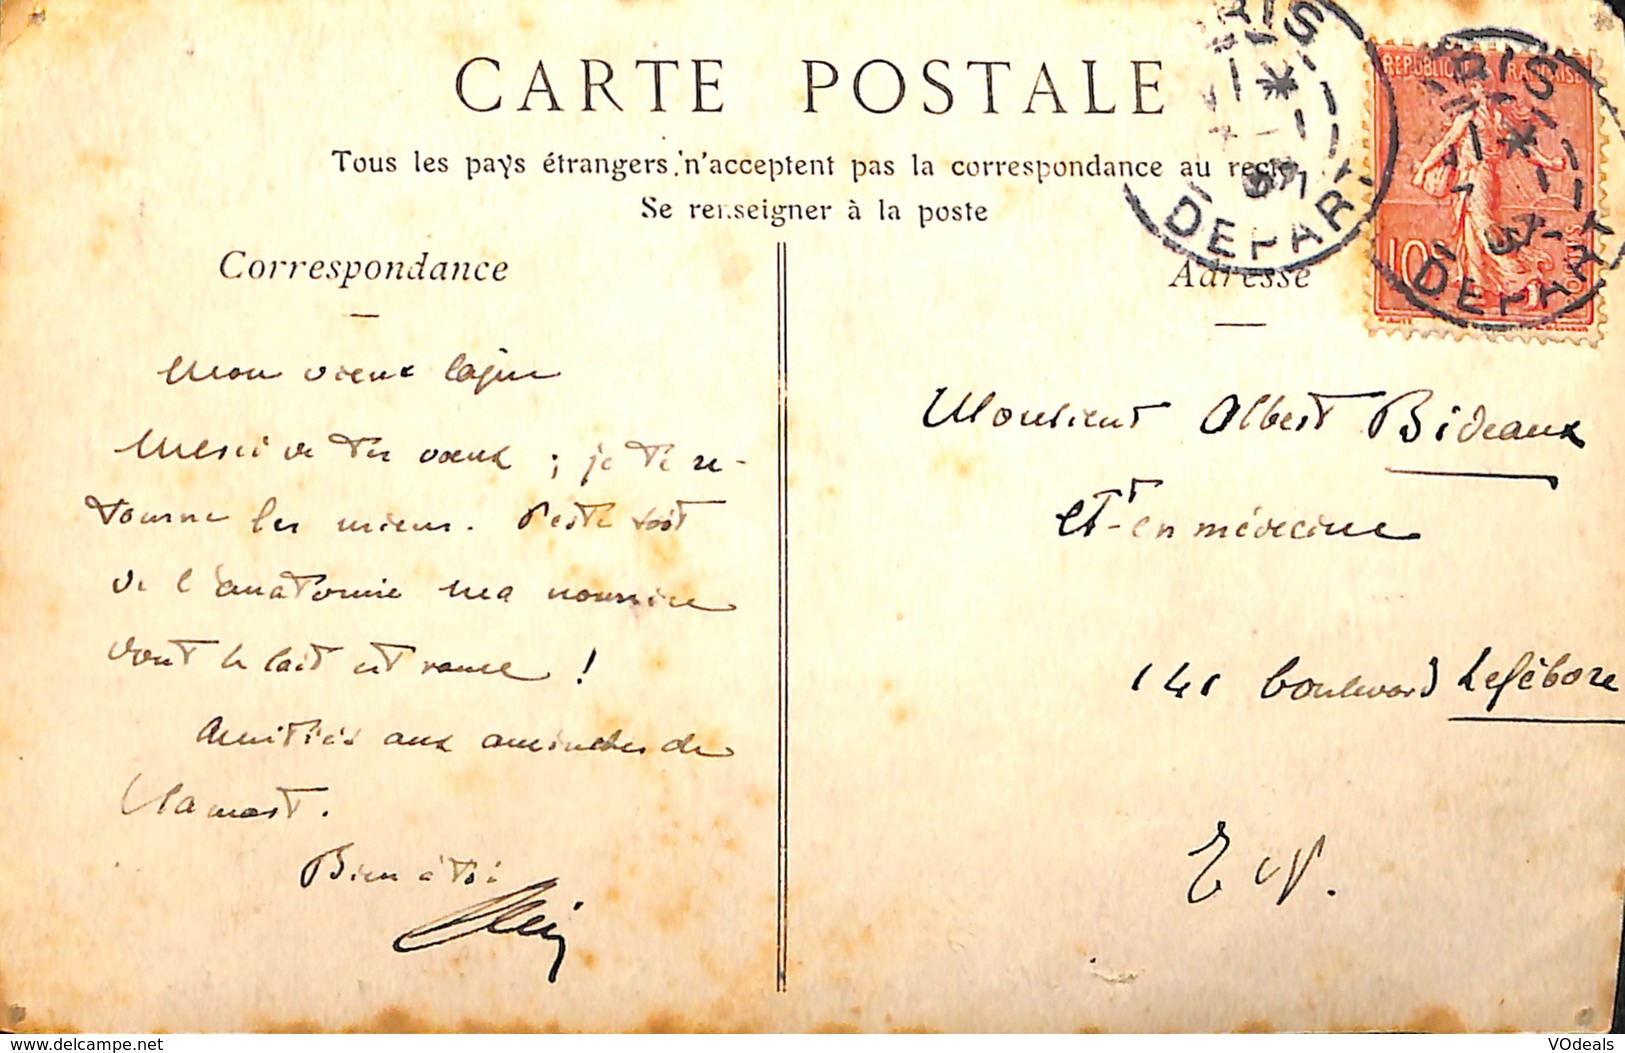 CARTE POSTALE
Tous les pays étrangers n'acceptent pas la correspondance au recto
Se renseigner à la poste
Correspondance
Adresse
RÉPUBLIQUE FRANÇAISE
10
POSTES
PARIS
DEPART
PARIS
DEPART
Mon vieux lapin
Merci de tes vœux ; je te re-
tourne les miens. Peste soit
de l'anatomie ma nourrice
dont le lait est rance !
Amitiés aux aminches de
Clamart.
Bien à toi
Monsieur Albert Bideaux
Et-en médecine
141 boulevard Lefèbvre
E V.
VOdeals
www.delcampe.net